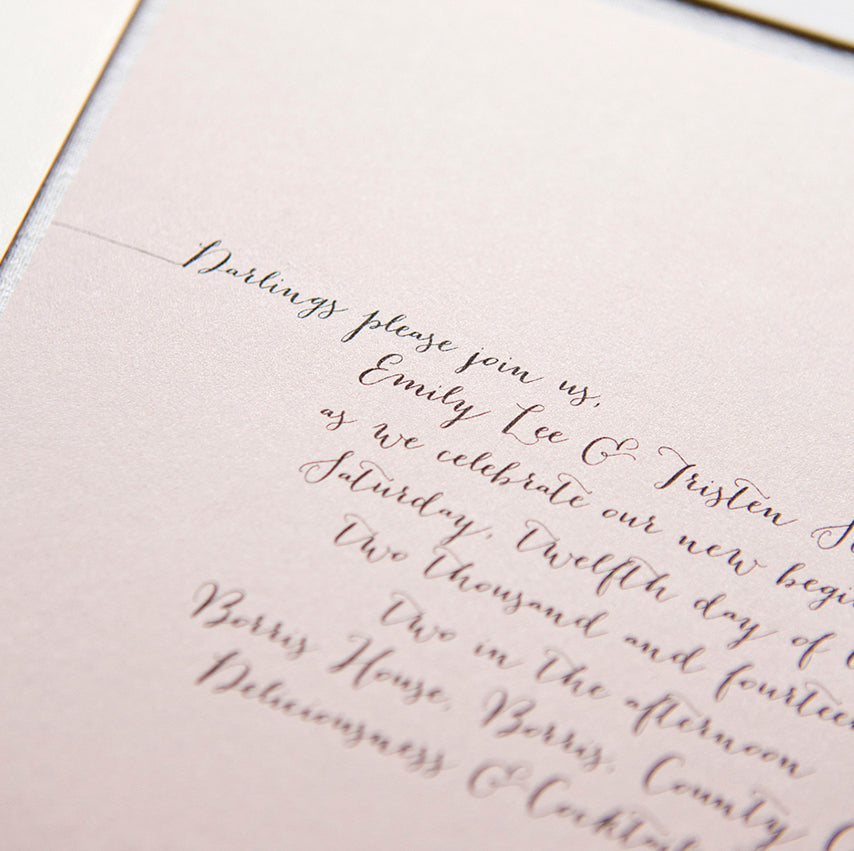 Darlings please join us,
Emily Lee & Tristen
as we celebrate our new
Saturday, twelfth day of
two thousand and fourteen
two in the afternoon
Borris House, Borris, County
Deliciousness &